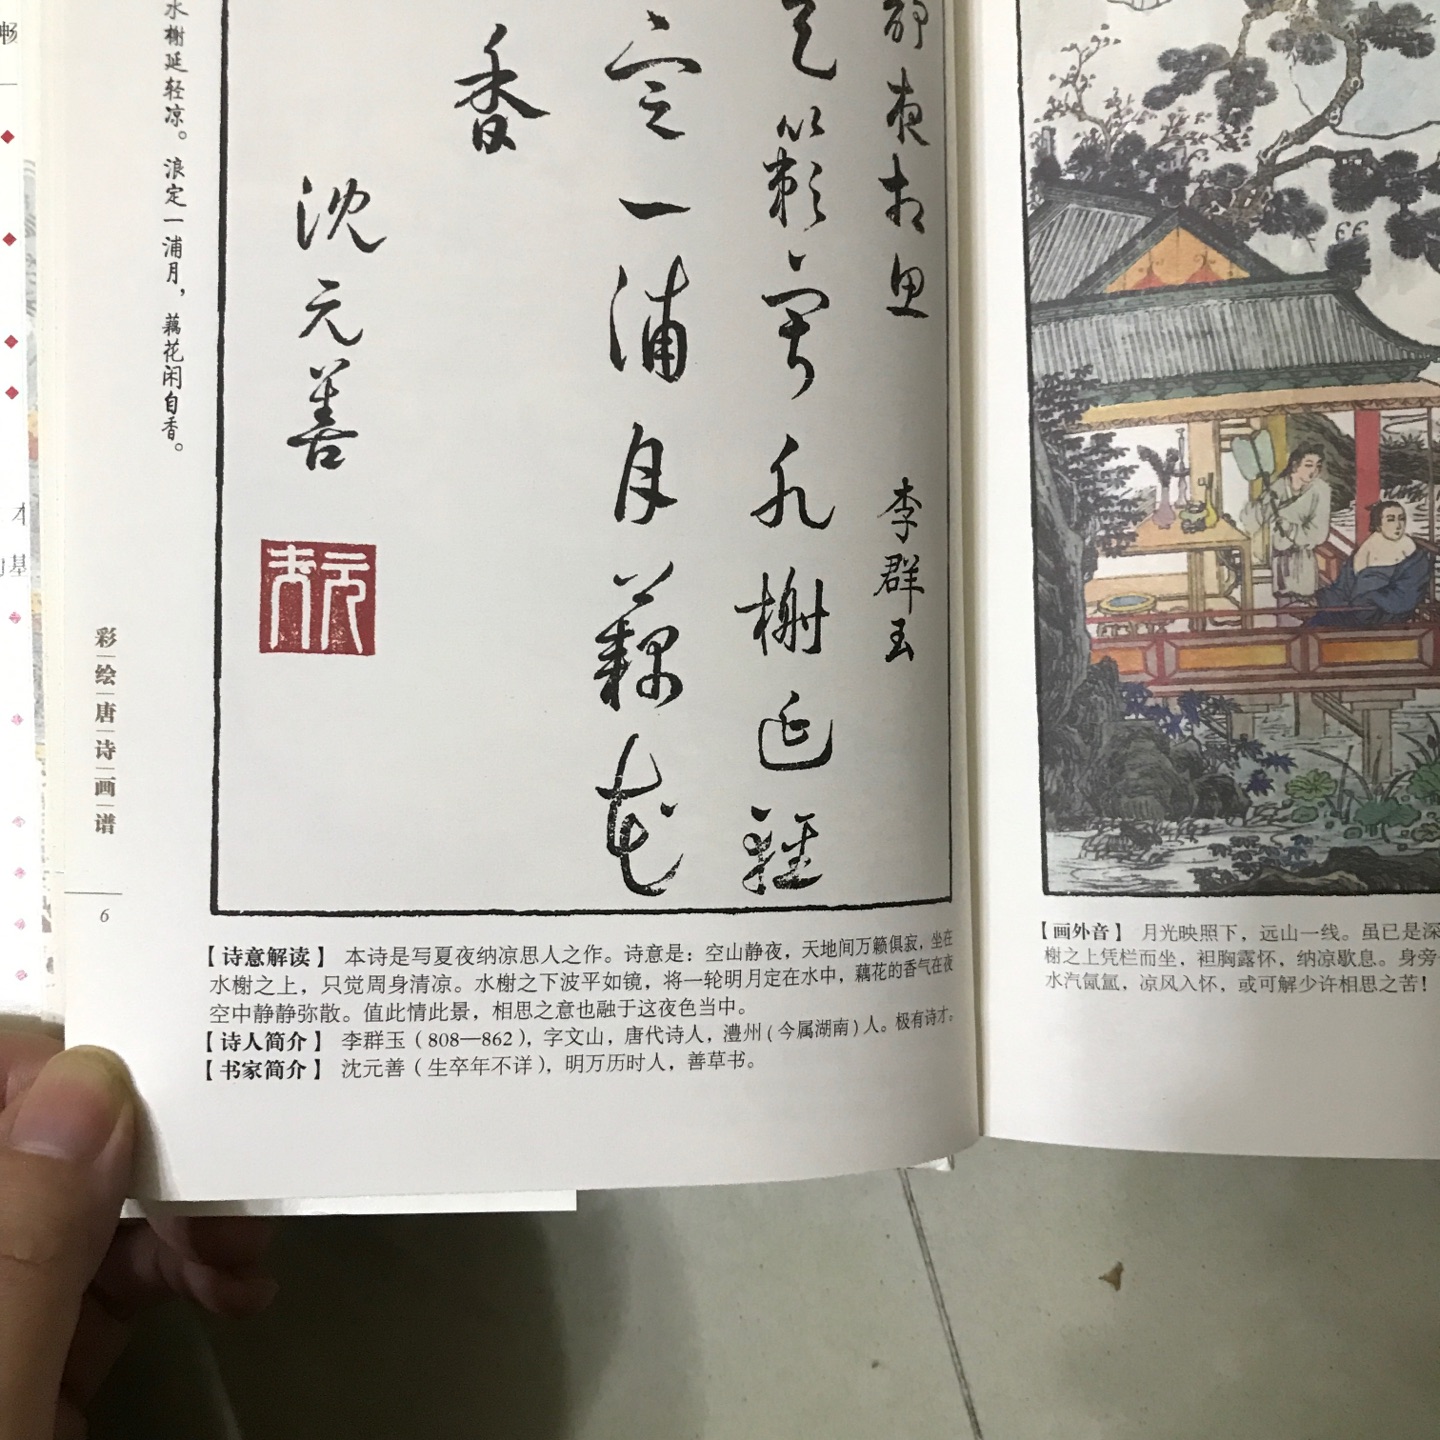 畅
基
水榭延轻凉。浪定一浦月，藕花闲自香。
彩绘唐诗画谱
6
夜相思
李群玉
籁寂水榭延轻
定一浦月藕花
香
沈元善
【诗意解读】 本诗是写夏夜纳凉思人之作。诗意是：空山静夜，天地间万籁俱寂，坐在
水榭之上，只觉周身清凉。水榭之下波平如镜，将一轮明月定在水中，藕花的香气在夜
空中静静弥散。值此情此景，相思之意也融于这夜色当中。
【诗人简介】 李群玉（808—862），字文山，唐代诗人，澧州（今属湖南）人。极有诗才。
【书家简介】 沈元善（生卒年不详），明万历时人，善草书。
【画外音】 月光映照下，远山一线。虽已是深
榭之上凭栏而坐，袒胸露怀，纳凉歇息。身旁
水汽氤氲，凉风入怀，或可解少许相思之苦！